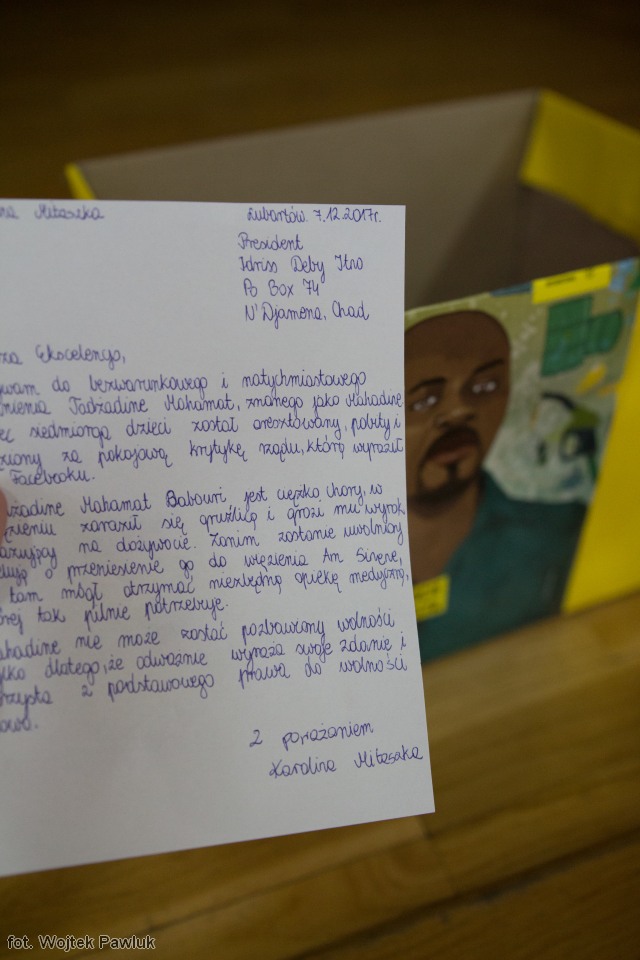 na Mitaszka
Lubartów. 7.12.2017r.
President
Idriss Deby Itno
Po Box 74
N'Djamena, Chad
sza Ekscelencjo,
ywam do bezwarunkowego i natychmiastowego
nienia Tadżadine Mahamat, znanego jako Mahadine
iec siedmiorga dzieci został aresztowany, pobity i
ziony za pokojową krytykę rządu, którą wyraził
Facebooku.
żadine Mahamat Babouri jest ciężko chory, w
zieniu zaraził się gruźlicą i grozi mu wyrok
azujący na dożywocie. Zanim zostanie uwolniony
eluję o przeniesienie go do więzienia Am Sinene,
tam mógł otrzymać niezbędną opiekę medyczną,
órej tak pilnie potrzebuje.
ahadine nie może zostać pozbawiony wolności
ylko dlatego, że odważnie wyraża swoje zdanie i
rzysta z podstawowego prawa do wolności
owa.
Z poważaniem
Karolina Mitaszka
fot. Wojtek Pawluk